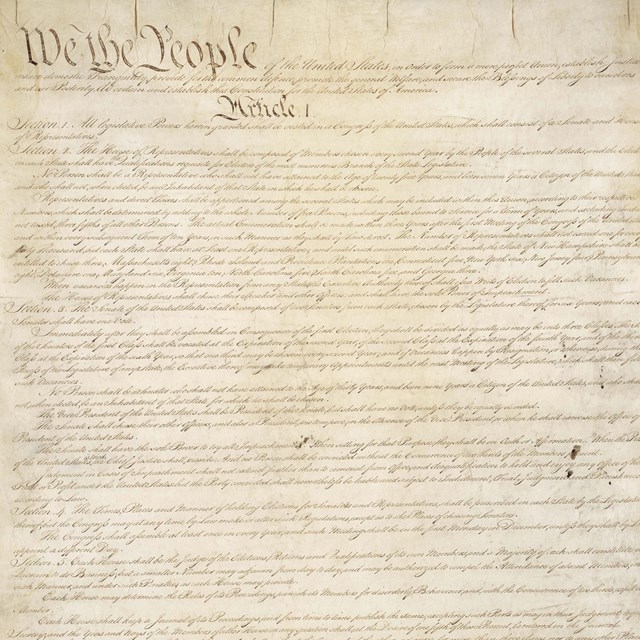 We the People of the United States, in Order to form a more perfect Union, establish Justice,
insure domestic Tranquility, provide for the common defence, promote the general Welfare, and secure the Blessings of Liberty to ourselves
and our Posterity, do ordain and establish this Constitution for the United States of America.
Article. I.
Section. 1. All legislative Powers herein granted shall be vested in a Congress of the United States, which shall consist of a Senate and House
of Representatives.
Section. 2. The House of Representatives shall be composed of Members chosen every second Year by the People of the several States, and the Electors
in each State shall have the Qualifications requisite for Electors of the most numerous Branch of the State Legislature.
No Person shall be a Representative who shall not have attained to the Age of twenty five Years, and been seven Years a Citizen of the United States,
and who shall not, when elected, be an Inhabitant of that State in which he shall be chosen.
Representatives and direct Taxes shall be apportioned among the several States which may be included within this Union, according to their respective
Numbers, which shall be determined by adding to the whole Number of free Persons, including those bound to Service for a Term of Years, and excluding Indians
not taxed, three fifths of all other Persons. The actual Enumeration shall be made within three Years after the first Meeting of the Congress of the United States,
and within every subsequent Term of ten Years, in such Manner as they shall by Law direct. The Number of Representatives shall not exceed one for every
thirty Thousand, but each State shall have at Least one Representative; and until such enumeration shall be made, the State of New Hampshire shall be
entitled to chuse three, Massachusetts eight, Rhode-Island and Providence Plantations one, Connecticut five, New-York six, New Jersey four, Pennsylvania
eight, Delaware one, Maryland six, Virginia ten, North Carolina five, South Carolina five, and Georgia three.
When vacancies happen in the Representation from any State, the Executive Authority thereof shall issue Writs of Election to fill such Vacancies.
The House of Representatives shall chuse their Speaker and other Officers; and shall have the sole Power of Impeachment.
Section. 3. The Senate of the United States shall be composed of two Senators from each State, chosen by the Legislature thereof, for six Years; and each
Senator shall have one Vote.
Immediately after they shall be assembled in Consequence of the first Election, they shall be divided as equally as may be into three Classes. The Seats
of the Senators of the first Class shall be vacated at the Expiration of the second Year, of the second Class at the Expiration of the fourth Year, and of the third
Class at the Expiration of the sixth Year, so that one third may be chosen every second Year; and if Vacancies happen by Resignation, or otherwise, during the
Recess of the Legislature of any State, the Executive thereof may make temporary Appointments until the next Meeting of the Legislature, which shall then fill
such Vacancies.
No Person shall be a Senator who shall not have attained to the Age of thirty Years, and been nine Years a Citizen of the United States, and who shall
not, when elected, be an Inhabitant of that State for which he shall be chosen.
The Vice President of the United States shall be President of the Senate, but shall have no Vote, unless they be equally divided.
The Senate shall chuse their other Officers, and also a President pro tempore, in the Absence of the Vice President, or when he shall exercise the Office of
President of the United States.
The Senate shall have the sole Power to try all Impeachments. When sitting for that Purpose, they shall be on Oath or Affirmation. When the President
of the United States is tried, the Chief Justice shall preside: And no Person shall be convicted without the Concurrence of two thirds of the Members present.
Judgment in Cases of Impeachment shall not extend further than to removal from Office, and disqualification to hold and enjoy any Office of honor,
Trust or Profit under the United States: but the Party convicted shall nevertheless be liable and subject to Indictment, Trial, Judgment and Punishment,
according to Law.
Section. 4. The Times, Places and Manner of holding Elections for Senators and Representatives, shall be prescribed in each State by the Legislature
thereof; but the Congress may at any time by Law make or alter such Regulations, except as to the Places of chusing Senators.
The Congress shall assemble at least once in every Year, and such Meeting shall be on the first Monday in December, unless they shall by Law
appoint a different Day.
Section. 5. Each House shall be the Judge of the Elections, Returns and Qualifications of its own Members, and a Majority of each shall constitute a
Quorum to do Business; but a smaller Number may adjourn from day to day, and may be authorized to compel the Attendance of absent Members, in
such Manner, and under such Penalties as each House may provide.
Each House may determine the Rules of its Proceedings, punish its Members for disorderly Behaviour, and, with the Concurrence of two thirds, expel a
Member.
Each House shall keep a Journal of its Proceedings, and from time to time publish the same, excepting such Parts as may in their Judgment require
Secrecy; and the Yeas and Nays of the Members of either House on any question shall, at the Desire of one fifth of those Present, be entered on the Journal.